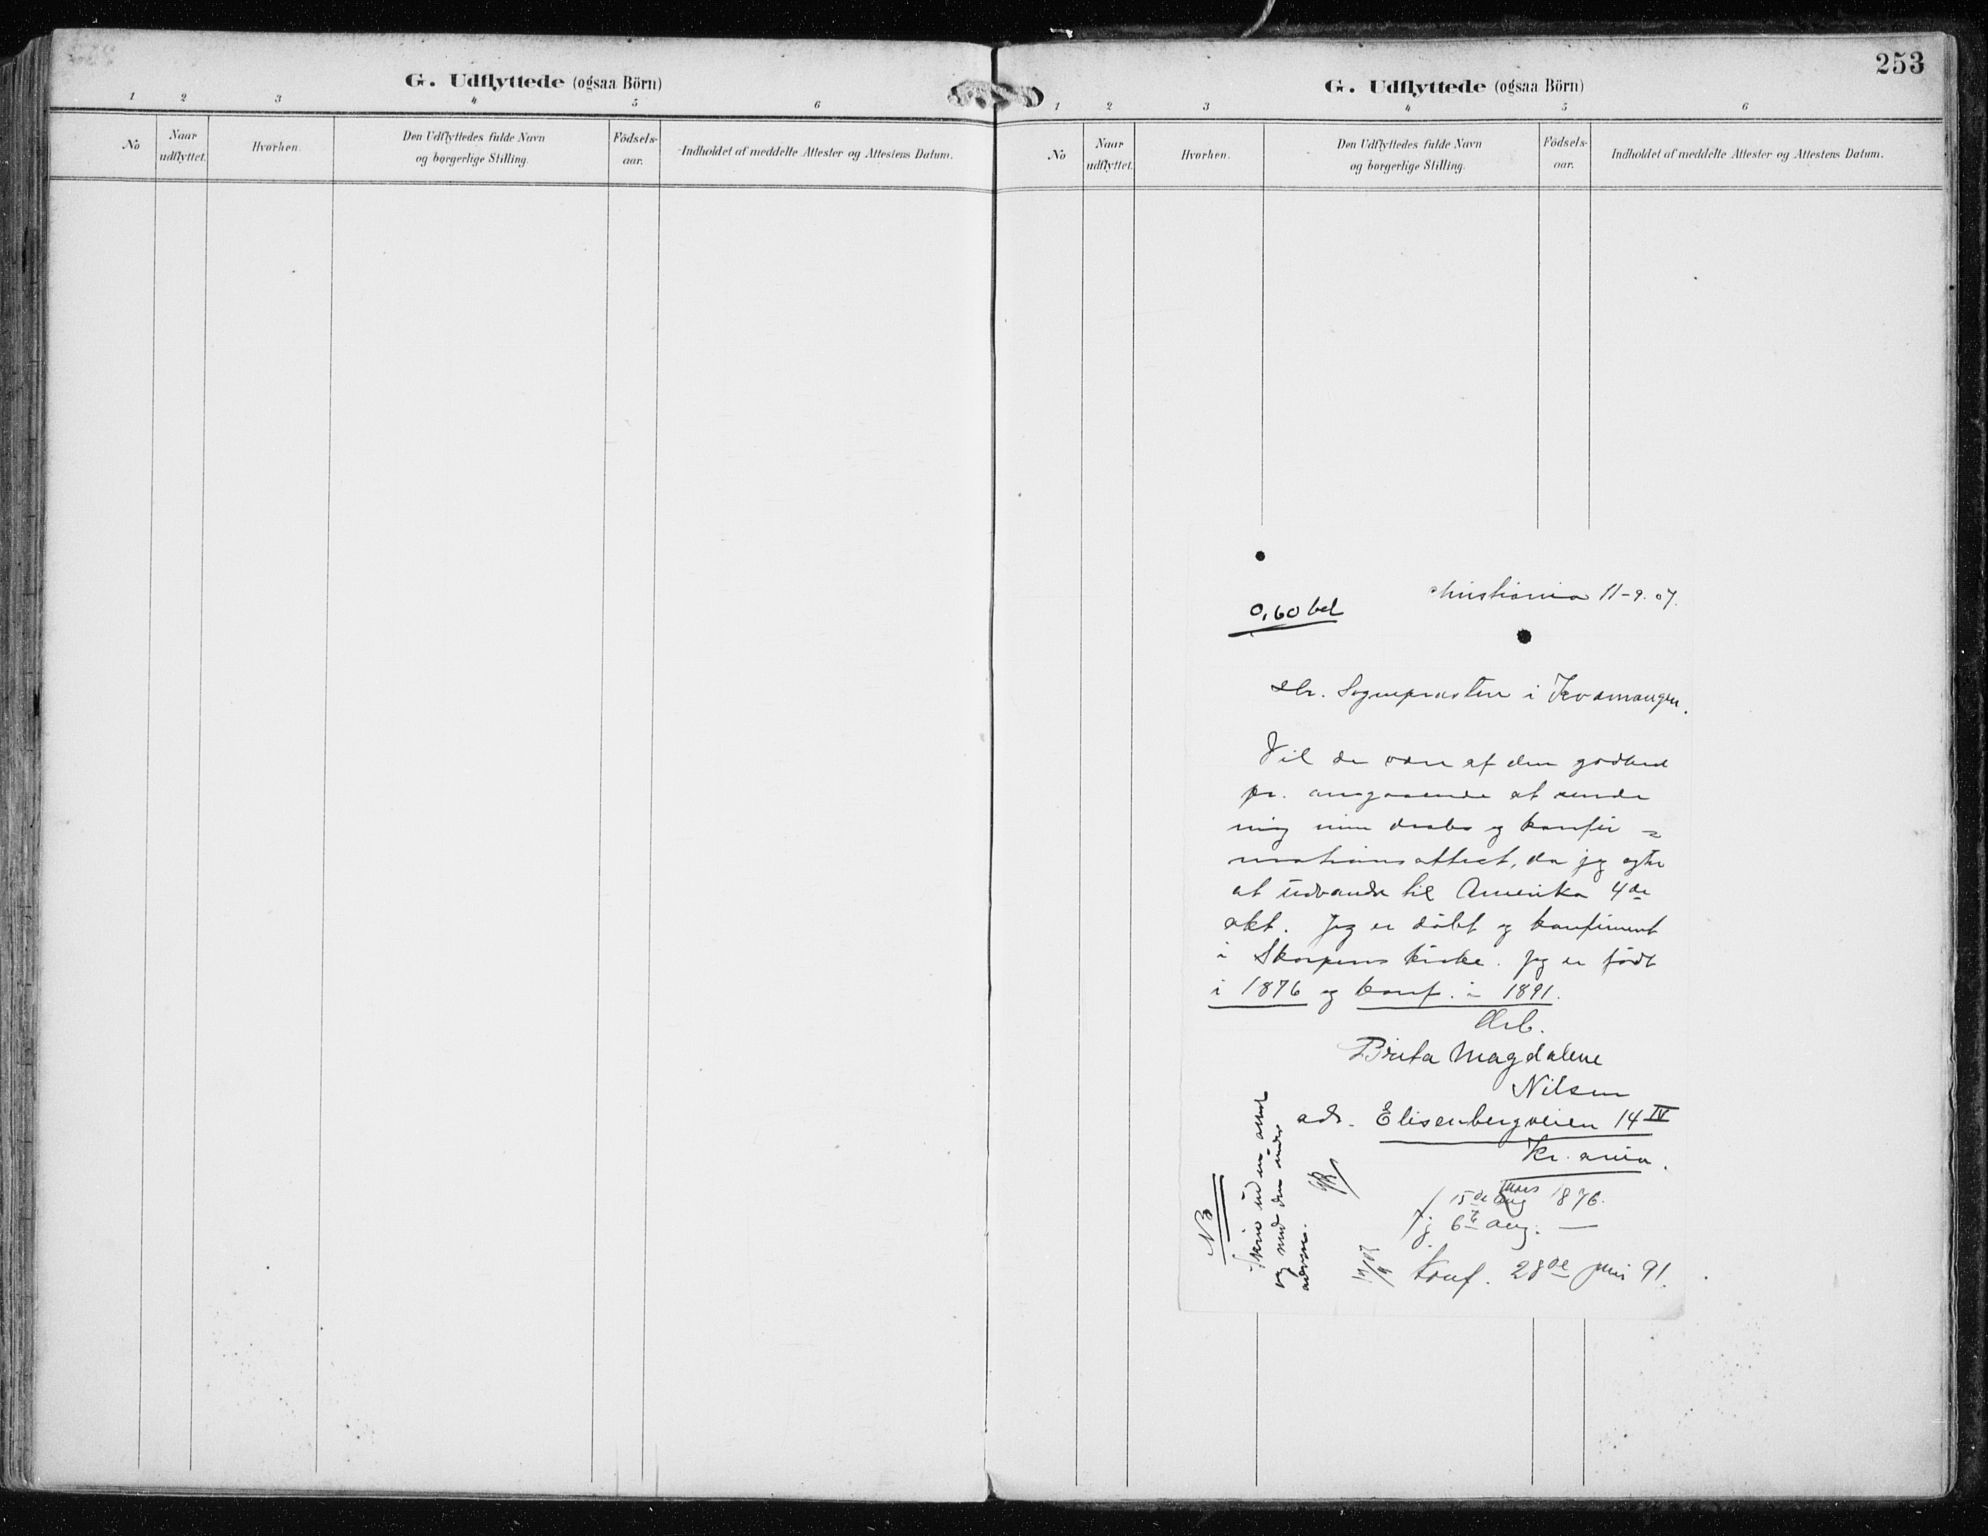 G. Udflyttede (ogsaa Börn)
1 2 3 4 5 6
No
Naar udflyttet.
Hvorhen.
Den Udflyttedes fulde Navn og borgerlige Stilling.
Födsels-aar.
Indholdet af meddelte Attester og Attestens Datum.
253
G. Udflyttede (ogsaa Börn)
1 2 3 4 5 6
No
Naar udflyttet.
Hvorhen.
Den Udflyttedes fulde Navn og borgerlige Stilling.
Födsels-aar.
Indholdet af meddelte Attester og Attestens Datum.
Christiania 11-9.07.
0,60 bet
Hr. Sogneprесten i Kvænangen.
Vil de være af den godhed
pr. omgaaende at sende
mig min daabs og konfir=
mationsattest, da jeg agter
at udvandre til Amerika 4de
okt. Jeg er döbt og konfirmert
i Skorpens kirke. Jeg er født
i 1876 og konf. i 1891.
Ærb.
Brita Magdalene
Nilsen
adr. Elisenbergveien 14 IV
Kr.ania.
f 15de mars aug 1876.
6te aug. —
Konf. 28de juni 91.
NB
Skriv ud en attest
og send den under
adressen.